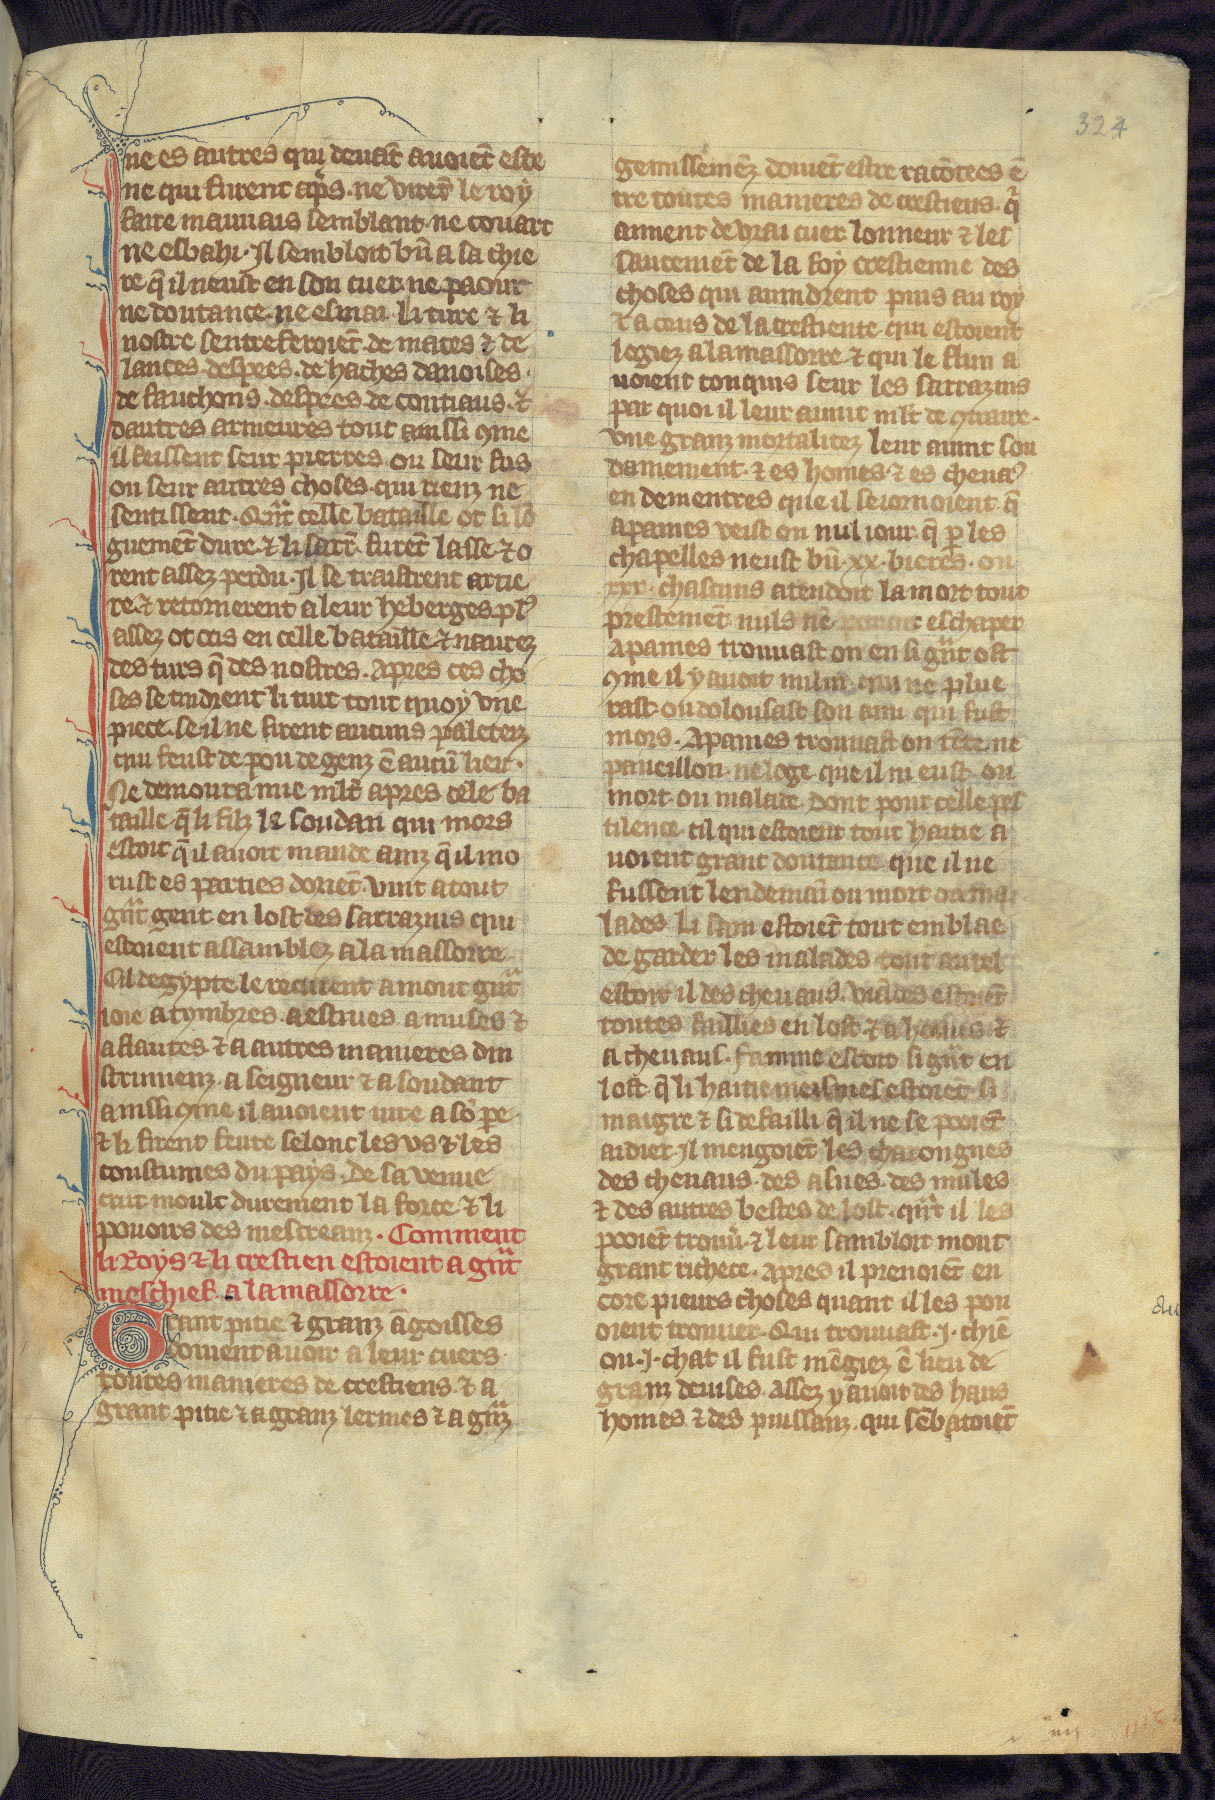 324
ne es autres qui deuāt auoiēt este
ne qui furent ap̃s. ne virēt le roy
faire mauuais semblant. ne couart
ne esbahi. Il sembloit bñ a sa chie
re q̃ il neust en son cuer ne paour
ne doutance. ne esmai. li turc ⁊ li
nostre sentreferoiēt de maces ⁊ de
lances. despees. de haches danoises.
de fauchons. despees de coutiaus. ⁊
dautres armeures tout ainssi ꝯme
il feissent seur pierres ou seur fus
ou seur autres choses. qui rienz ne
sentissent. Qñt celle bataille ot si lō
guemēt dure. ⁊ li sarr̃. furēt lasse. ⁊ o
rent assez perdu. Il se traistrent arrie
re. ⁊ retornerent a leur heberges. pl᾿
assez ot ocis en celle bataille ⁊ naurez
des turs q̃ des nostres. Apres ces cho
ses se tindrent li turc tout quoy vne
piece. se il ne firent aucuns paletez
qui feust de pou de genz ē aucū lieu.
Ne demoura mie mlt̃ apres cele ba
taille q̃ li filz le soudan qui mors
estoit q̃ il auoit mande ainz q̃ il mo
rust es parties doriēt. vint a tout
gñt gent en lost des sarrazins qui
estoient assamblez a la massorre.
Cil degypte le recurent a mout gñt
ioie a tymbres. a estiues. a muses ⁊
a flautes. ⁊ a autres manieres din
strumenz. a seigneur ⁊ a soudant
ainssi ꝯme il auoient iure a sō pe᷑.
⁊ li firent feute selonc les vs ⁊ les
coustumes du pays. De sa venue
crut moult durement la force. ⁊ li
pouoirs des mescreanz. Comment
li Roys ⁊ li crestien estoient a gñt
meschief. a la massorre.
Grant pitie ⁊ granz āgoisses
doiuent auoir a leur cuers
toutes manieres de crestiens. ⁊ a
grant pitie ⁊ a granz lermes ⁊ a gñz
gemissemēz doiuēt estre racōtees ē
tre toutes manieres de crestiens. q̃
aiment de vrai cuer lonneur ⁊ les
saucemēt de la foy crestienne des
choses qui auindrent puis au roy
⁊ a ceus de la crestiente. qui estoient
logiez a la massorre. ⁊ qui le flun a
uoient conquis seur les sarrazins
par quoi il leur auint mlt̃ de ꝯtraire.
vne granz mortalitez leur auint sou
dainement. ⁊ es homes. ⁊ es cheua᾿
en dementres que il seiornoient. q̃
apaines veist on nul iour. q̃ ꝑ les
chapelles neust bñ .xx. bieres. ou
xxx. chascuns atendoit la mort tout
prestemēt. nuls nē eschaper
Apaines trouuast on en si gñt ost
ꝯme il y auoit nului. qui ne plue
rast. ou dolousast son ami qui fust
mors. Apaines trouuast on tēte. ne
paueillon. ne loge. que il ni eust. ou
mort. ou malade. Dont pour celle pes
tilence. cil qui estoient tout haitie a
uoient grant doutance que il ne
fussent lendemaī ou mort ou ma
lades. Li sain estoiēt tout emblae
de garder les malades. tout autel
estoit il des cheuaus. Viādes estoiēt
toutes faillies en lost. ⁊ a homes. ⁊
a cheuaus. Famine estoit si gñt en
lost. q̃ li haitie meismes estoiēt si
maigre ⁊ si defailli q̃ il ne se pooiēt
aidier. Il mengoiēt les charongnes
des cheuaus. des asnes. des mules
⁊ des autres bestes de lost. quāt il les
pooiēt trouu᷑. ⁊ leur sambloit mout
grant richece. apres il prenoiēt en
core pieurs choses quant il les pou
oient trouuer. Qui trouuast .j. chiē
ou .j. chat il fust mēgiez ē lieu de
granz deuises. assez y auoit des haus
homes. ⁊ des puissanz. qui sēbatoiēt